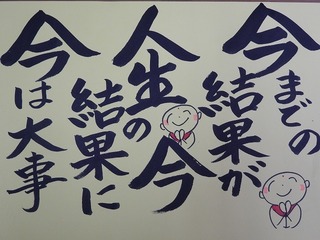 今までの
結果が
今
人生の
結果に
今は大事